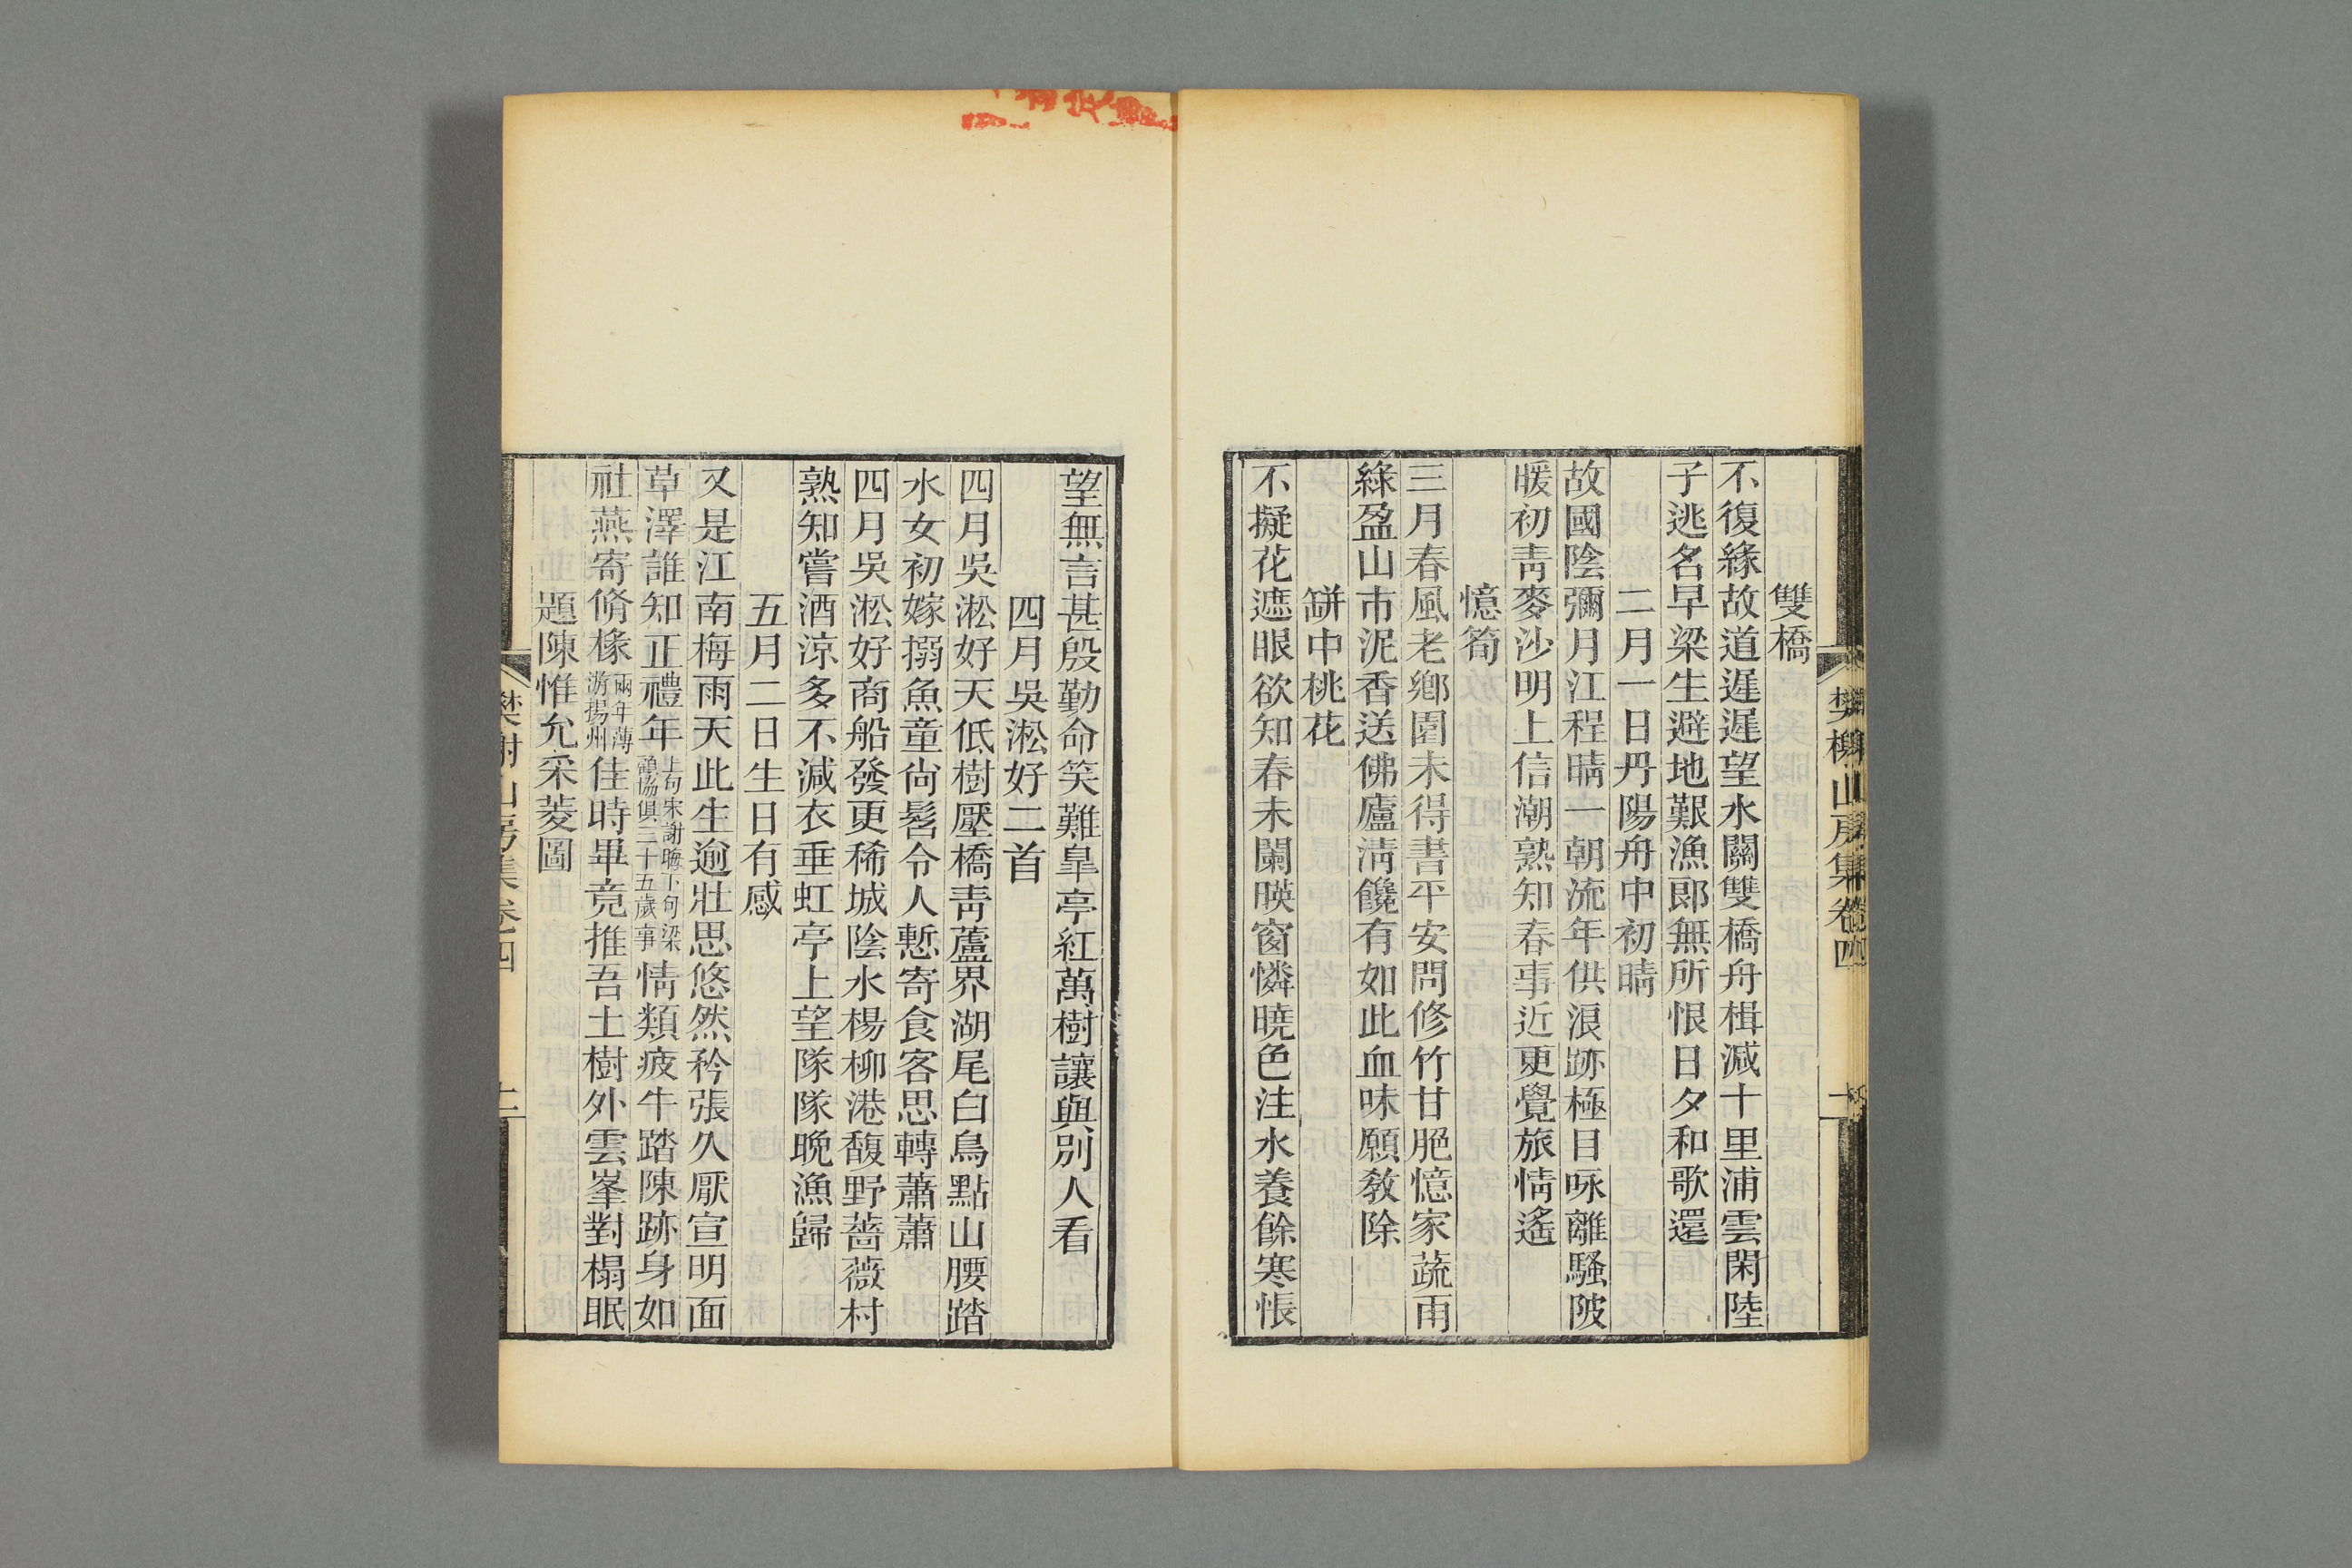 雙橋
不復緣故道遲遲望水關雙橋舟楫減十里浦雲閑陸
子逃名早梁生避地艱漁郎無所恨日夕和歌還
二月一日丹陽舟中初晴
故國陰彌月江程晴一朝流年供浪跡極目咏離騷陂
暖初靑麥沙明上信潮熟知春事近更覺旅情遙
憶筍
三月春風老鄉園未得書平安問修竹甘脆憶家蔬雨
綠盈山市泥香送佛廬淸饞有如此血味願敎除
缾中桃花
不擬花遮眼欲知春未闌暎窗憐曉色注水養餘寒悵
樊榭山房集卷四
望無言甚殷勤命笑難皐亭紅萬樹讓與別人看
四月吳淞好二首
四月吳淞好天低樹壓橋靑蘆界湖尾白鳥點山腰踏
水女初嫁搦魚童尙髫令人慙寄食客思轉蕭蕭
四月吳淞好商船發更稀城陰水楊柳港馥野薔薇村
熟知嘗酒涼多不減衣垂虹亭上望隊隊晚漁歸
五月二日生日有感
又是江南梅雨天此生逾壯思悠然矜張久厭宣明面
草澤誰知正禮年上句宋謝晦下句梁顧協俱三十五歲事情類疲牛踏陳跡身如
社燕寄脩椽兩年薄游揚州佳時畢竟推吾土樹外雲峯對榻眠
題陳惟允采菱圖
樊榭山房集卷四